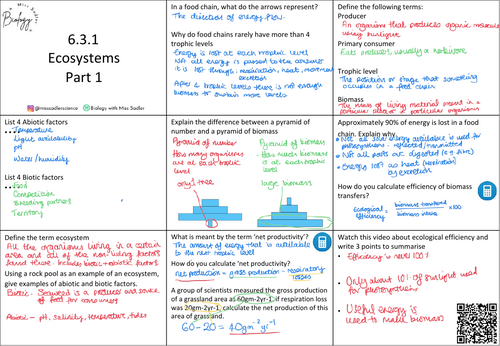 Miss Sadler
Biology
6.3.1
Ecosystems
Part 1
@missadlerscience
Biology with Miss Sadler
In a food chain, what do the arrows represent?
The direction of energy flow.
Why do food chains rarely have more than 4
trophic levels
Energy is lost at each trophic level
Not all energy is passed to the consumer
it is lost through: respiration, heat, movement
excretion
After 4 trophic levels there is not enough
biomass to sustain more levels
Define the following terms:
Producer
An organism that produces organic molecules
using sunlight
Primary consumer
Eats producers, usually a herbivore
Trophic level
The position or stage that something
occupies in a food chain
Biomass
The mass of living material present in a
particular place or in particular organisms
List 4 Abiotic factors
Temperature
Light availability
pH
Water/humidity
List 4 Biotic factors
Food
Competition
Breeding partners
Territory
Explain the difference between a pyramid of
number and a pyramid of biomass
Pyramid of number
How many organisms
are at each trophic
level
only 1 tree
Pyramid of biomass
How much biomass
at each trophic
level
large biomass
Approximately 90% of energy is lost in a food
chain. Explain why.
Not all solar energy available is used for
photosynthesis - reflected/transmitted
Not all parts are digested (e.g. bone)
Energy lost as heat (respiration)
by excretion
How do you calculate efficiency of biomass
transfers?
Ecological efficiency = biomass transferred / biomass intake x100
Define the term ecosystem
All the organisms living in a certain
area and all of the non-living factors
found there. Includes biotic + abiotic factors
Using a rock pool as an example of an ecosystem,
give examples of abiotic and biotic factors.
Biotic - Seaweed is a producer and source
of food for consumers
Abiotic - pH, salinity, temperature, tides
What is meant by the term 'net productivity'?
The amount of energy that is available to
the next trophic level
How do you calculate 'net productivity'
net production = gross production - respiratory
losses
A group of scientists measured the gross production
of a grassland area as 60gm-2yr-1, if respiration loss
was 20gm-2yr-1, calculate the net production of this
area of grassland.
60-20 = 40gm⁻²yr⁻¹
Watch this video about ecological efficiency and
write 3 points to summarise
Efficiency is never 100%
Only about 10% of sunlight used
for photosynthesis
Useful energy is
used to make biomass